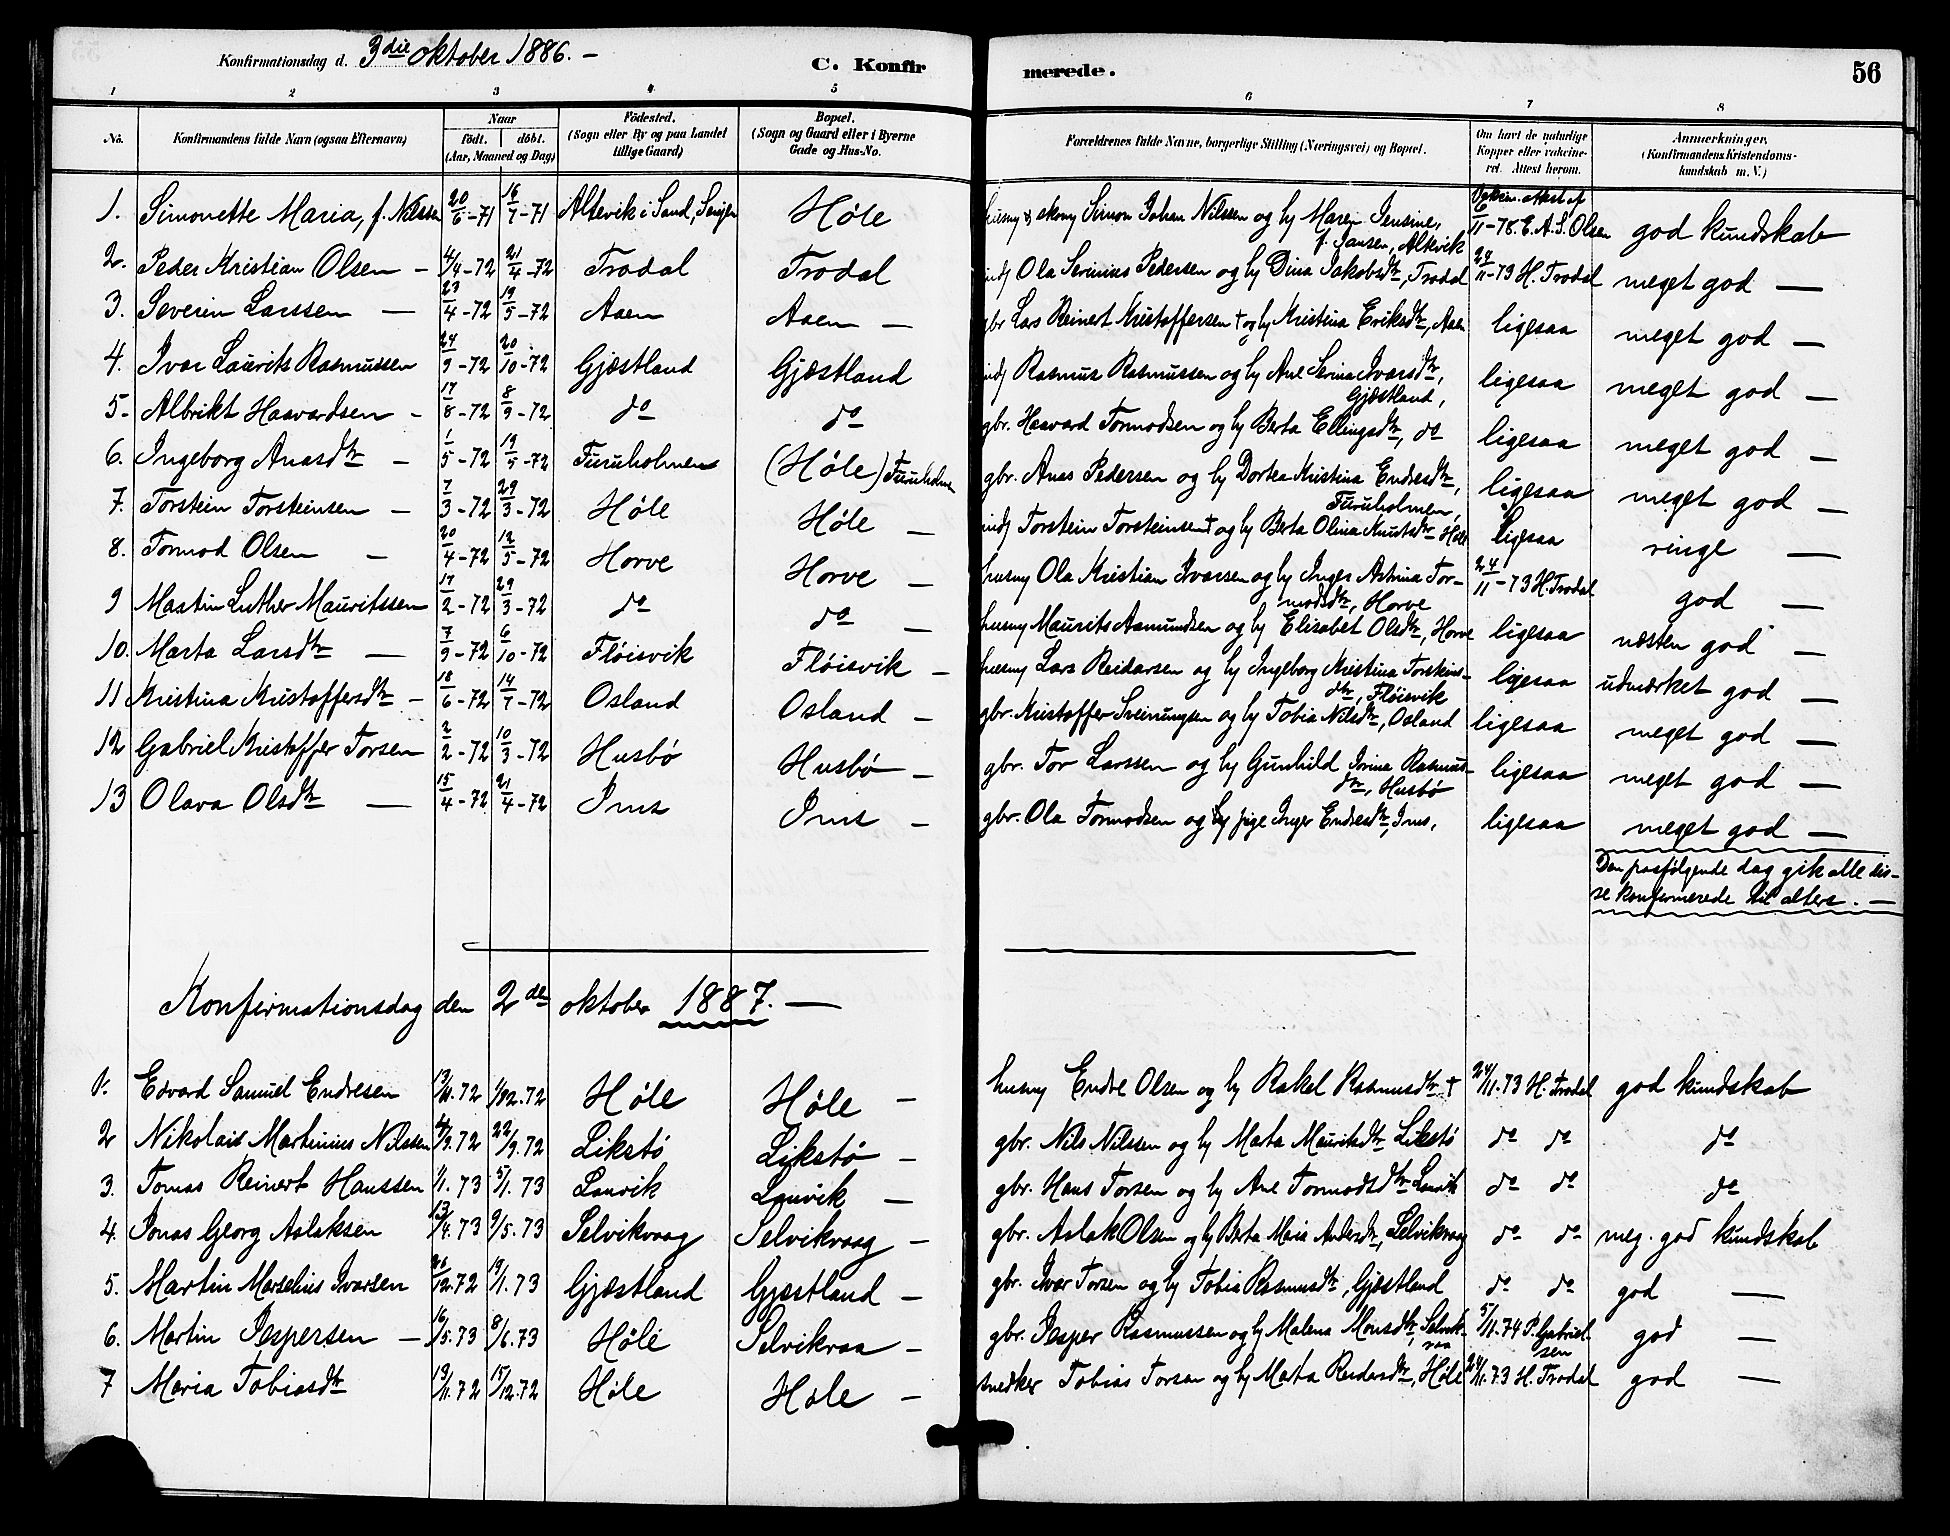 Konfirmationsdag d. 3die oktober 1886. —
C. Konfirmerede.
56
1 2 3 4 5 6 7 8
No.
Konfirmandens fulde Navn (ogsaa Efternavn)
Naar
født. døbt.
(Aar, Maaned og Dag)
Fødested.
(Sogn eller By og paa Landet
tillige Gaard)
Bopæl.
(Sogn og Gaard eller i Byerne
Gade og Hus-No.
Forældrenes fulde Navne, borgerlige Stilling (Næringsvei) og Bopæl.
Om havt de naturlige
Kopper eller vakcine-
ret. Attest herom.
Anmærkninger,
(Konfirmandens Kristendoms-
kundskab m. V.)
1. Simonette Maria, f. Nilssen 20/6-71 16/7-71 Altevik i Sand, Høle husmd & skomg Simon Johan Nilssen og hg Maren Jensine, f. Jansen, Altevik Vakcin. attest af 6/11-78. E. A. S. Olsen god kundskab
2. Peder Kristian Olsen — 4/4-72 21/4-72 Trodal Trodal indj Ola Serinius Pedersen og hg Dina Jakobsdtr, Trodal 24/11-73 H. Trodal meget god —
3. Severin Larssen — 23/4-72 19/5-72 Aaen Aaen — gbr Lars Reinert Kristoffersen † og hg Kristina Eriksdtr, Aaen ligesaa meget god —
4. Ivar Laurits Rasmussen 24/9-72 20/10-72 Gjæstland Gjæstland indj Rasmus Rasmussen og hg Ane Serina Ivarsdtr, Gjæstland, ligesaa meget god —
5- Albrikt Haavardsen - 17/8-72 8/9-72 do do gbr. Haavard Tormodsen og hg Berta Ellingsdtr, do ligesaa meget god —
6. Ingeborg Anasdtr — 1/5-72 19/5-72 Furuholmen (Høle) Furuholmen gbr. Anas Pedersen og hg Dortea Kristina Endresdtr, Furuholmen, ligesaa meget god —
7. Torstein Torsteinsen — 7/3-72 29/3-72 Høle Høle — indj Torstein Torsteinsen † og hg Berta Olina Knutsdtr Høle ligesaa ringe —
8. Tormod Olsen — 20/4-72 12/5-72 Horve Horve — husmd Ola Kristian Ivarsen og hg Inger Astrina Tormodsdtr, Horve 24/11-73 H. Trodal god —
9 Martin Luther Mauritssen 17/2-72 29/3-72 do do — husmd Maurits Aamundsen og hg Elisabet Olsdtr, Horve ligesaa næsten god —
10. Marta Larsdtr — 7/9-72 6/10-72 Fløisvik Fløisvik — husmd Lars Reidarsen og hg Ingeborg Kristina Torsteinsdtr, Fløisvik ligesaa udmærket god —
11 Kristina Kristoffersdtr — 18/6-72 14/7-72 Osland Osland — gbr. Kristoffer Sveinungsen og hg Tobia Nilsdtr, Osland ligesaa meget god —
12 Gabriel Kristoffer Torsen 2/2-72 10/3-72 Husbø Husbø — gbr. Tor Larssen og hg Gunhild Jorina Rasmusdtr, Husbø ligesaa meget god —
13 Olava Olsdtr — 15/4-72 21/4-72 Ims Ims — gbr. Ola Tormodsen og pige Inger Endresdtr, Ims, ligesaa meget god —
Den paafølgende dag gik alle dis-
se konfirmerede til alters. —
Konfirmationsdag den 2den oktober 1887. —
1. Edvard Samuel Endresen 13/11.72 1/12.72 Høle Høle — husmd Endre Olsen og hg Rakel Rasmusdtr † 24/11.73 H. Trodal god kundskab
2 Nikolais Martinius Nilssen 4/9.72 22/9.72 Likstø Likstø — gbr. Nils Nilssen og hg Marta Mauritsdtr Likstø do do do
3. Tomas Reinert Hanssen 1/1.73 5/1.73 Lauvik Lauvik — gbr. Hans Torsen og hg Ane Tormodsdtr Lauvik do do do
4. Jonas Georg Aslaksen 13/4.73 9/5.73 Selvikvaag Selvikvaag — gbr. Aslak Olsen og hg Berta Maria Andersdtr, Selvikvaag do do meg. god kundskab
5. Martin Marselius Ivarsen 26/12.72 19/1.73 Gjæstland Gjæstland — gbr. Ivar Torsen og hg Tobia Rasmusdtr, Gjæstland do do god —
6. Martin Jespersen — 16/5.73 8/6.73 Høle Selvikvaa — gbr. Jesper Rasmussen og hg Malena Monsdtr, Selvikvaa 5/11.74 P. Gabrielsen god —
7 Maria Tobiasdtr 13/11.72 15/12.72 Høle Høle — snedker Tobias Torsen og hg Marta Reidarsdtr, Høle 24/11.73 H. Trodal god —